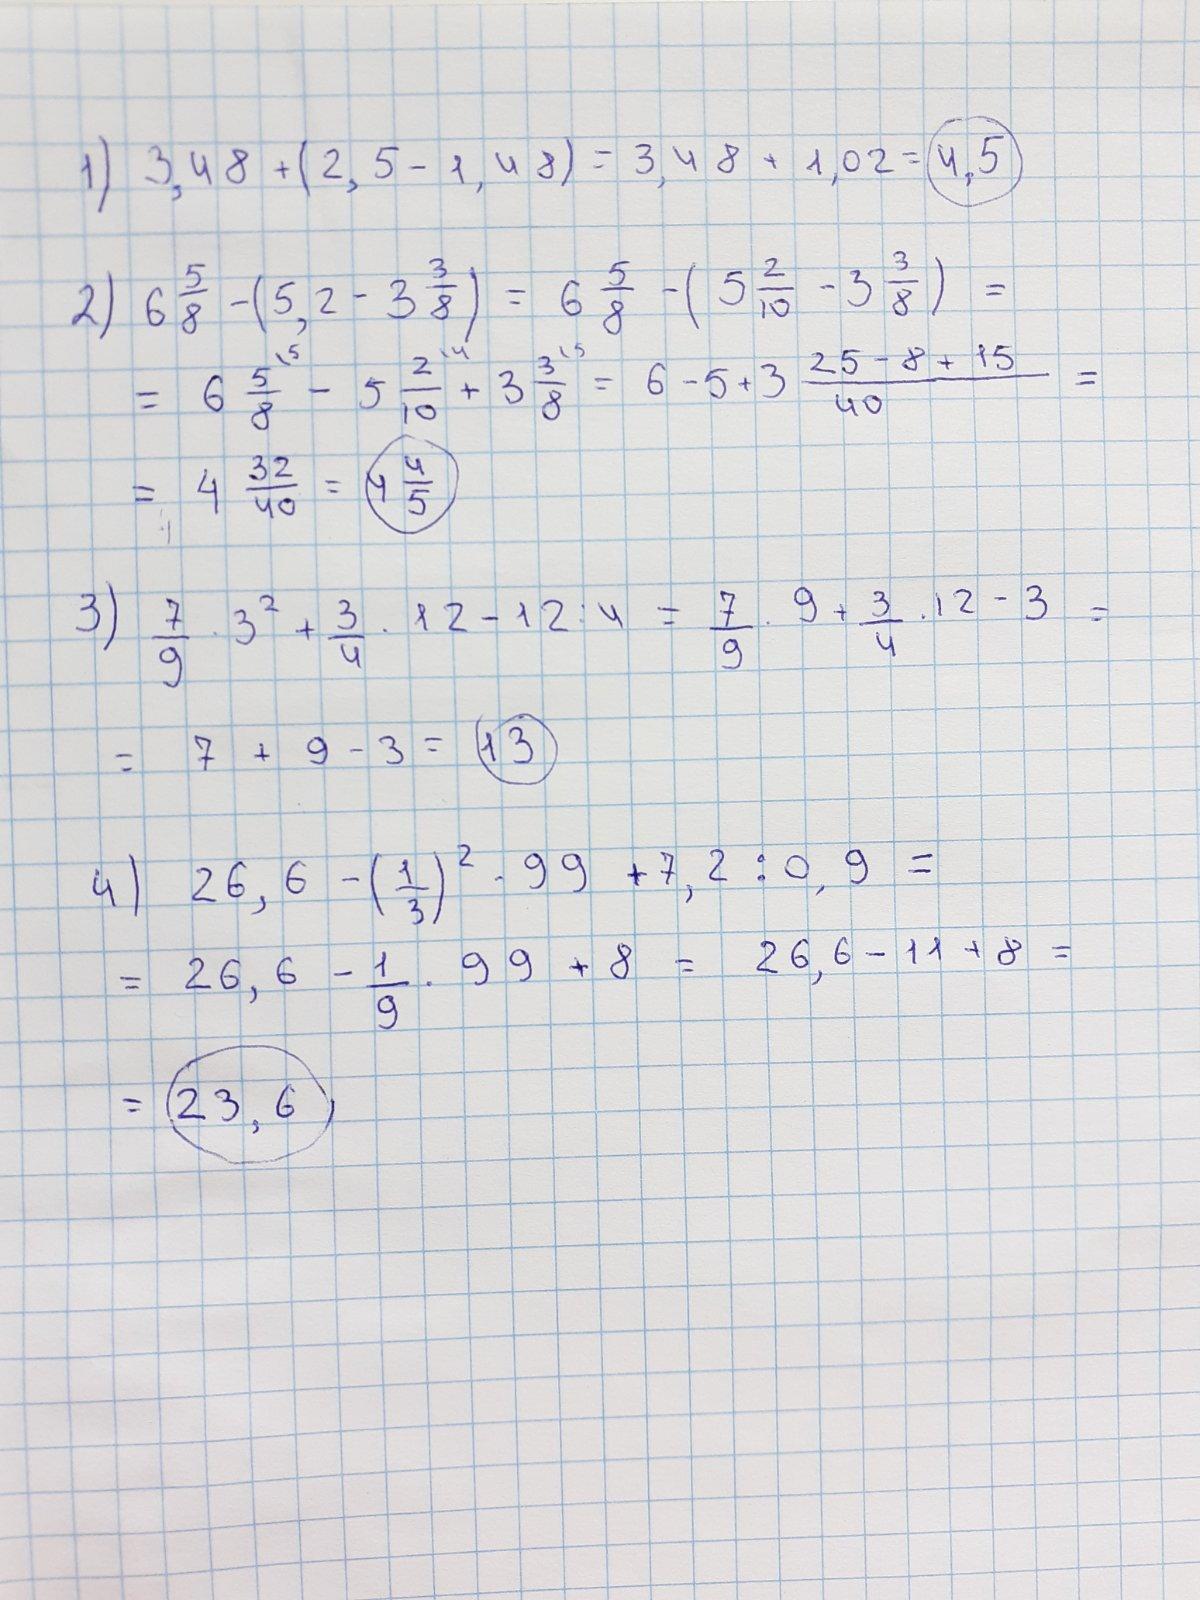 1) 3,48 + (2,5 - 1,48) = 3,48 + 1,02 = 4,5
2) 6 5/8 - (5,2 - 3 3/8) = 6 5/8 - (5 2/10 - 3 3/8) =
= 6 5/8 ^15 - 5 2/10 ^14 + 3 3/8 ^15 = 6 - 5 + 3 (25 - 8 + 15)/40 =
= 4 32/40 = 4 4/5
3) 7/9 · 3² + 3/4 · 12 - 12 : 4 = 7/9 · 9 + 3/4 · 12 - 3 =
= 7 + 9 - 3 = 13
4) 26,6 - (1/3)² · 99 + 7,2 : 0,9 =
= 26,6 - 1/9 · 99 + 8 = 26,6 - 11 + 8 =
= 23,6